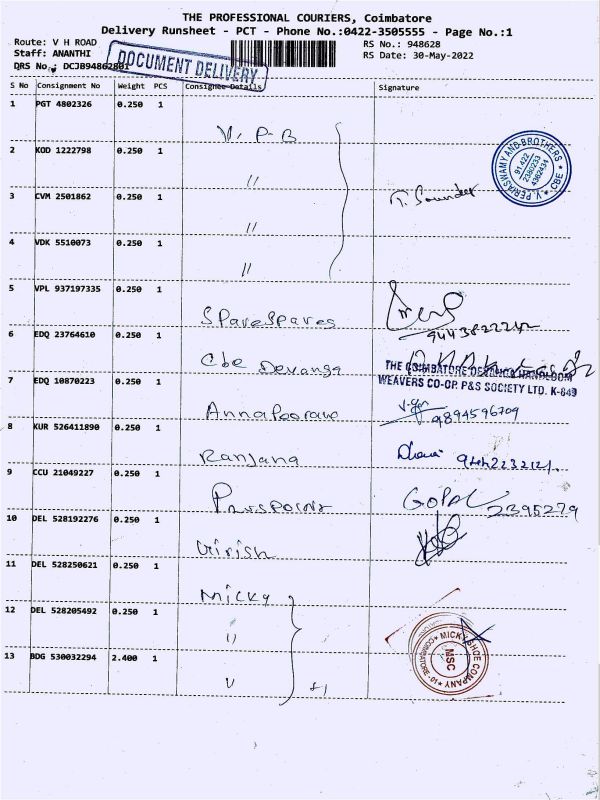 THE PROFESSIONAL COURIERS, Coimbatore
Delivery Runsheet - PCT - Phone No.:0422-3505555 - Page No.:1
Route: V H ROAD
RS No.: 948628
Staff: ANANTHI
RS Date: 30-May-2022
DRS No.: DCJB94862801
DOCUMENT DELIVERY
S No Consignment No Weight PCS Consignee Details Signature
1 PGT 4802326 0.250 1
V. P-B
2 KOD 1222798 0.250 1
V. PERIASWAMY AND BROTHERS * CBE *
91 422
2380233
4362434
"
3 CVM 2501862 0.250 1
"
4 VDK 5510073 0.250 1
"
5 VPL 937197335 0.250 1
SpareSpares
6 EDQ 23764610 0.250 1
Cbe Devanga
THE COIMBATORE DEVANGA HANDLOOM
WEAVERS CO-OP. P&S SOCIETY LTD. K-649
7 EDQ 10870223 0.250 1
9894596709
8 KUR 526411890 0.250 1
Ranjana
9 CCU 21049227 0.250 1
GOPAL 2395279
10 DEL 528192276 0.250 1
Girish
11 DEL 528250621 0.250 1
Micky
12 DEL 528205492 0.250 1
"
MICKY SHOE COMPANY
COIMBATORE - 01
MSC
13 BDG 530032294 2.400 1
"